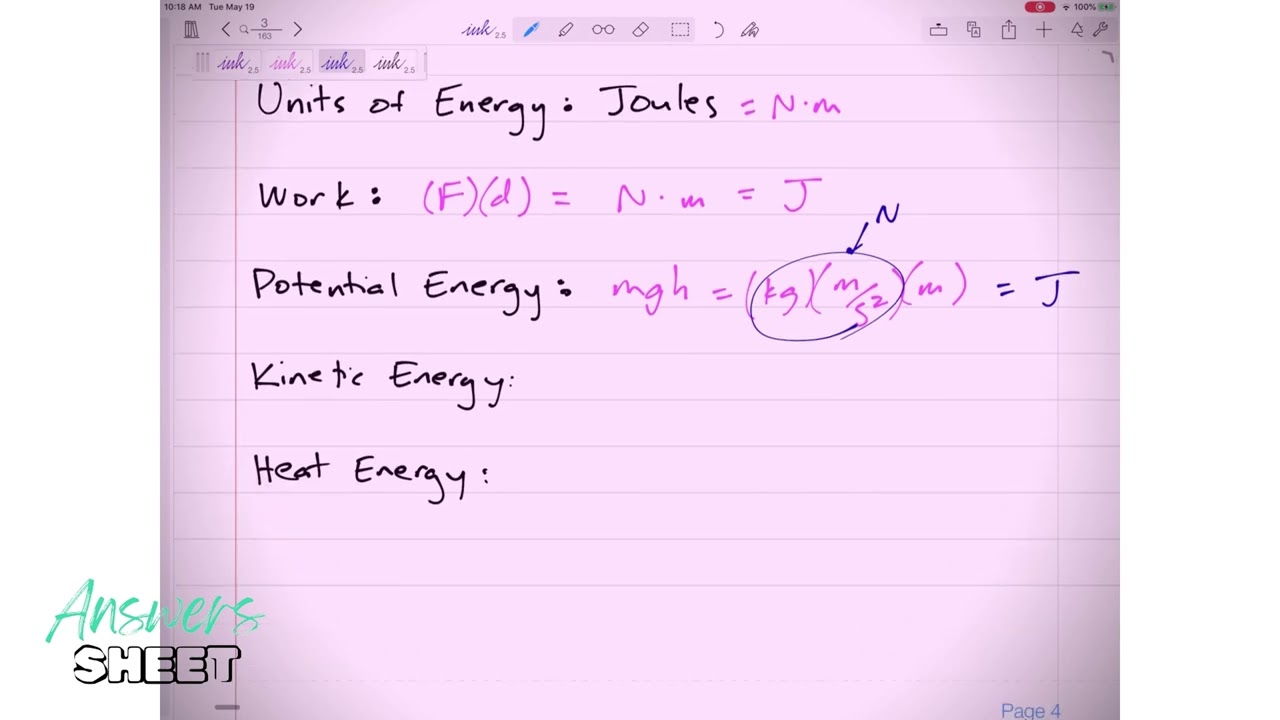 10:18 AM Tue May 19
100%
3
163
ink 2.5
ink 2.5 ink 2.5 ink 2.5 ink 2.5
Units of Energy: Joules = N·m
Work: (F)(d) = N·m = J
N
Potential Energy: mgh = (kg)(m/s²)(m) = J
Kinetic Energy:
Heat Energy:
Answers
SHEET
Page 4